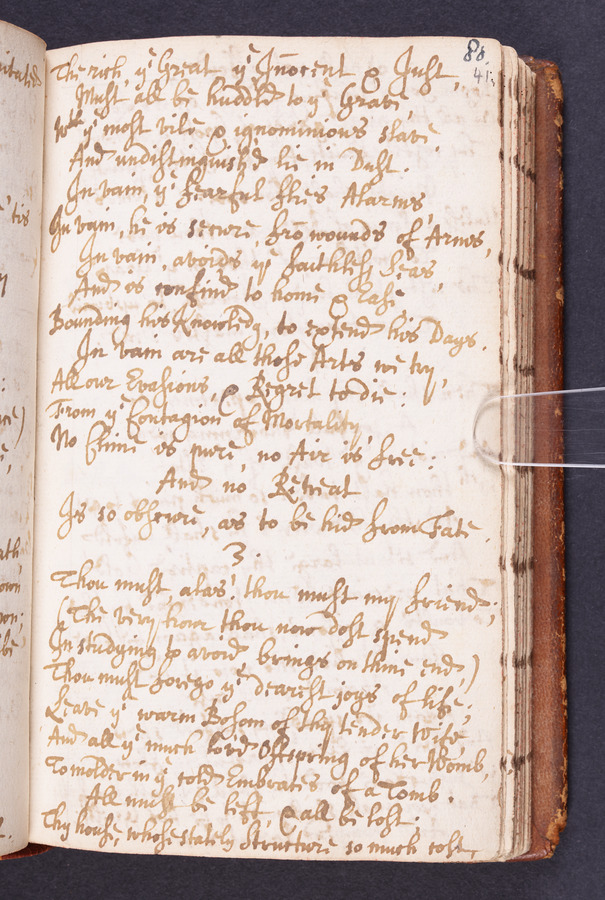 80.
41.
The rich, yͤ Great yͤ Iñocent & Just,
Must all be huddled to yͤ Grave,
Wᵗʰ yͤ most vile & ignominious slave
And undistinguish'd lie in Dust.
In vain, yͤ fearful flies Alarms,
In vain, he is secure, frõ wounds of Arms,
In vain, avoids yͤ faithless seas,
And is confin'd to home & Ease,
Bounding his Knowledg, to extend his Days.
In vain are all those Arts we try,
All our Evasions, & Regret to die:
From yͤ Contagion of Mortality
No Clime is pure, no Air is free:
And no Retreat
Is so obscure, as to be hid from Fate.
3.
Thou must, alas! thou must my friend;
(The very hour thou now dost spend
In studying to avoid, brings on thine end,)
Thou must forego yͤ dearest joys of life;
Leave yͤ warm Bosom of thy tender Wife,
And all yͤ much lov'd Offspring of her Womb,
To molder in yͤ cold Embraces of a Tomb.
All must be left, & all be lost.
Thy house, whose stately Structure so much cost,